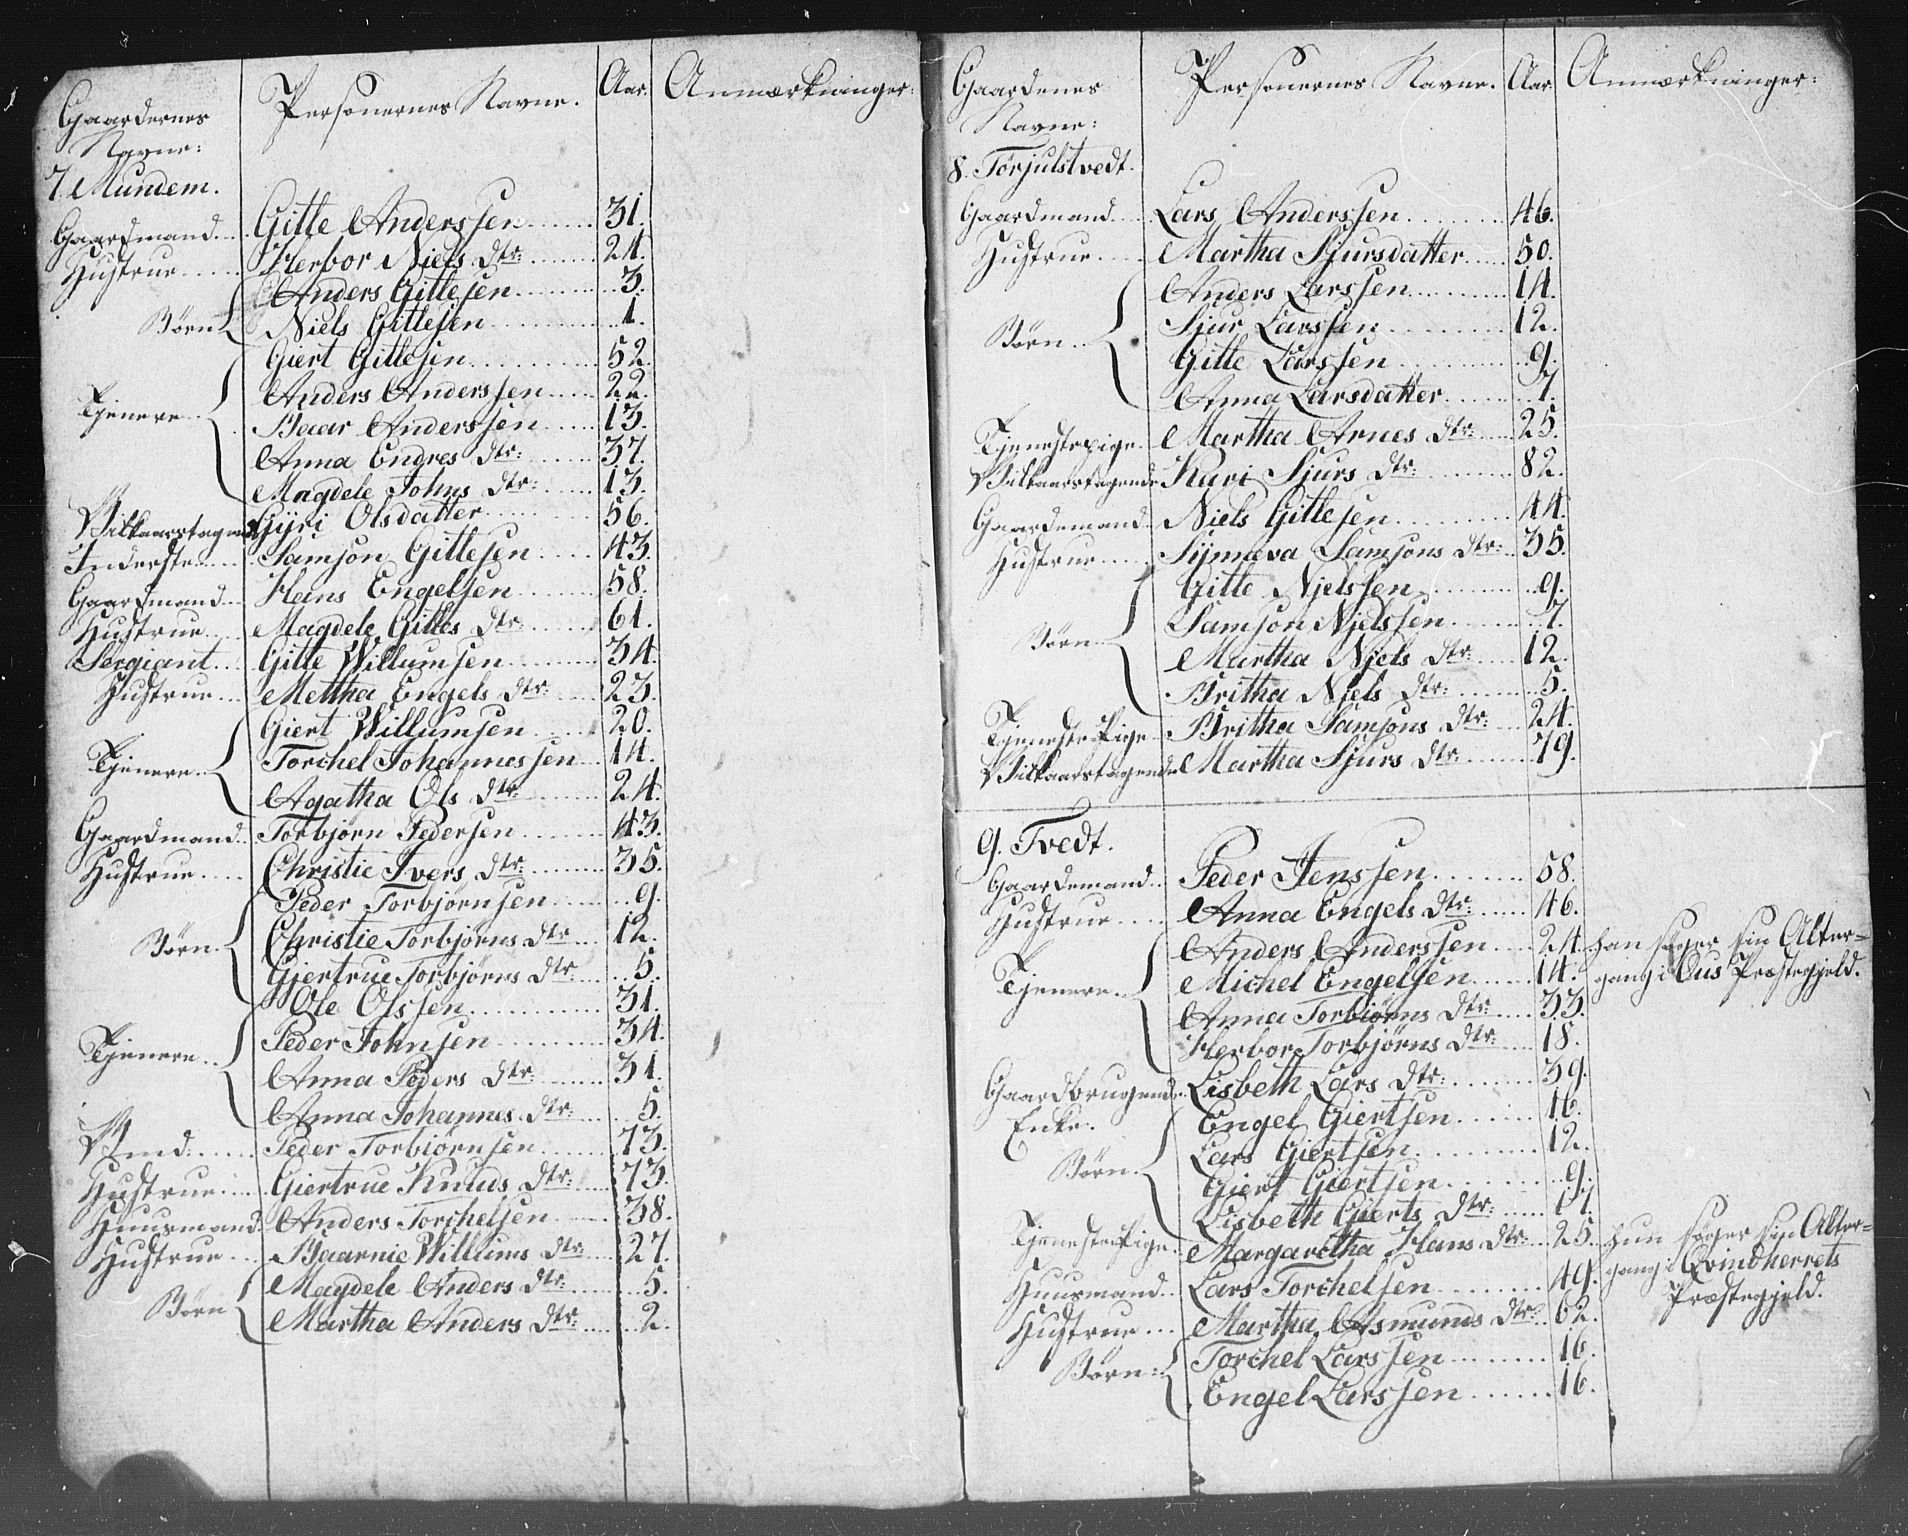 Gaardernes Navne: Personernes Navne. Aar. Anmærkninger:
7. Mundem.
Gaardmand.... Gitle Anderssen........ 31.
Hustrue...... Herbor Niels Dtr:........ 24.
Børn { Anders Gitlesen.......... 3.
Niels Gitlesen............ 1.
Tjenere.. { Giert Gitlesen........... 52.
Anders Anderssen...... 22.
Baar Anderssen...... 13.
Anna Endres Dtr:...... 37.
Magdele Johns Dtr:...... 13.
Vilkaarstagende Gyri Olsdatter........ 56.
Inderste...... Samson Gitlesen..... 43.
Gaardmand... Hans Engelsen........ 58.
Hustrue..... Magdele Gitles Dtr:....... 61.
Sergiant.... Gitle Willumsen......... 34.
Hustrue.... Mettha Engels Dtr:...... 23.
Tjenere.. { Giert Willumsen...... 20.
Torchel Johannessen.... 14.
Agatha Ols Dtr......... 24.
Gaardmand.. Torbjørn Pedersen........ 43.
Hustrue..... Christie Ivers Dtr:........ 35.
Børn. { Peder Torbjørnsen........ 9.
Christie Torbjørns Dtr.... 12.
Gjertrue Torbjørns Dtr:... 5.
Tjenere.. { Ole Olssen............ 31.
Peder Johnsen.......... 34.
Anna Peders Dtr:....... 31.
Anna Johannes Dtr:.... 5.
Mand....... Peder Torbiørnsen....... 73.
Hustrue..... Giertrue Knuds Dtr:..... 73.
Huusmand. Anders Torchelsen...... 38.
Hustrue... Baarnie Willums Dtr:.... 27.
Børn { Magdele Anders Dtr....... 5.
Martha Anders Dtr:...... 2.
Gaardenes Navne: Personernes Navne. Aar. Anmærkninger:
8. Torjulstvedt.
Gaardmand.... Lars Anderssen......... 46.
Hustrue..... Martha Sjursdatter..... 50.
Børn.. { Anders Larssen.......... 14.
Sjur Larssen............ 12.
Gitle Larssen............ 9.
Anna Larsdatter......... 7.
Tjenestepige. Martha Arnes Dtr:..... 25.
Vilkaarstagende Kari Sjurs Dtr:......... 82.
Gaardemand. Niels Gitlesen........... 44.
Hustrue...... Synneva Samsons Dtr: 35.
Børn.. { Gitle Njelssen........... 9.
Samson Njelssen......... 7.
Martha Njels Dtr:..... 12.
Britha Njels Dtr:........ 5.
TjenestePige Britha Samsons Dtr:... 24.
Vilkaarstagende Martha Sjurs Dtr:....... 79.
9. Tvedt.
Gaardemand.. Peder Jenssen......... 58.
Hustrue..... Anna Engels Dtr:...... 46.
Tjenere.. { Anders Anderssen.... 24. han søger sin Alter=
Michel Engelsen....... 14. gang i Ous Præstegjeld.
Anna Torbiørns Dtr:..... 33.
Herbor Torbjørns Dtr:.... 18.
Gaardbrugende Lisbeth Lars Dtr:........ 39.
Enke.
Børn.. { Engel Giertsen........ 16.
Lars Giertsen.......... 12.
Giert Giertsen......... 9.
Lisbeth Gierts Dtr:..... 17.
TjenestePige. Margaretha Hans Dtr:.. 25. hun søger sin Alter=
Huusmand.. Lars Torchelsen.......... 49. gang i Qvindherrets
Præstegjeld.
Hustrue... Martha Asmunds Dtr:. 62.
Børn: { Torchel Larssen......... 16.
Engel Larssen....... 16.